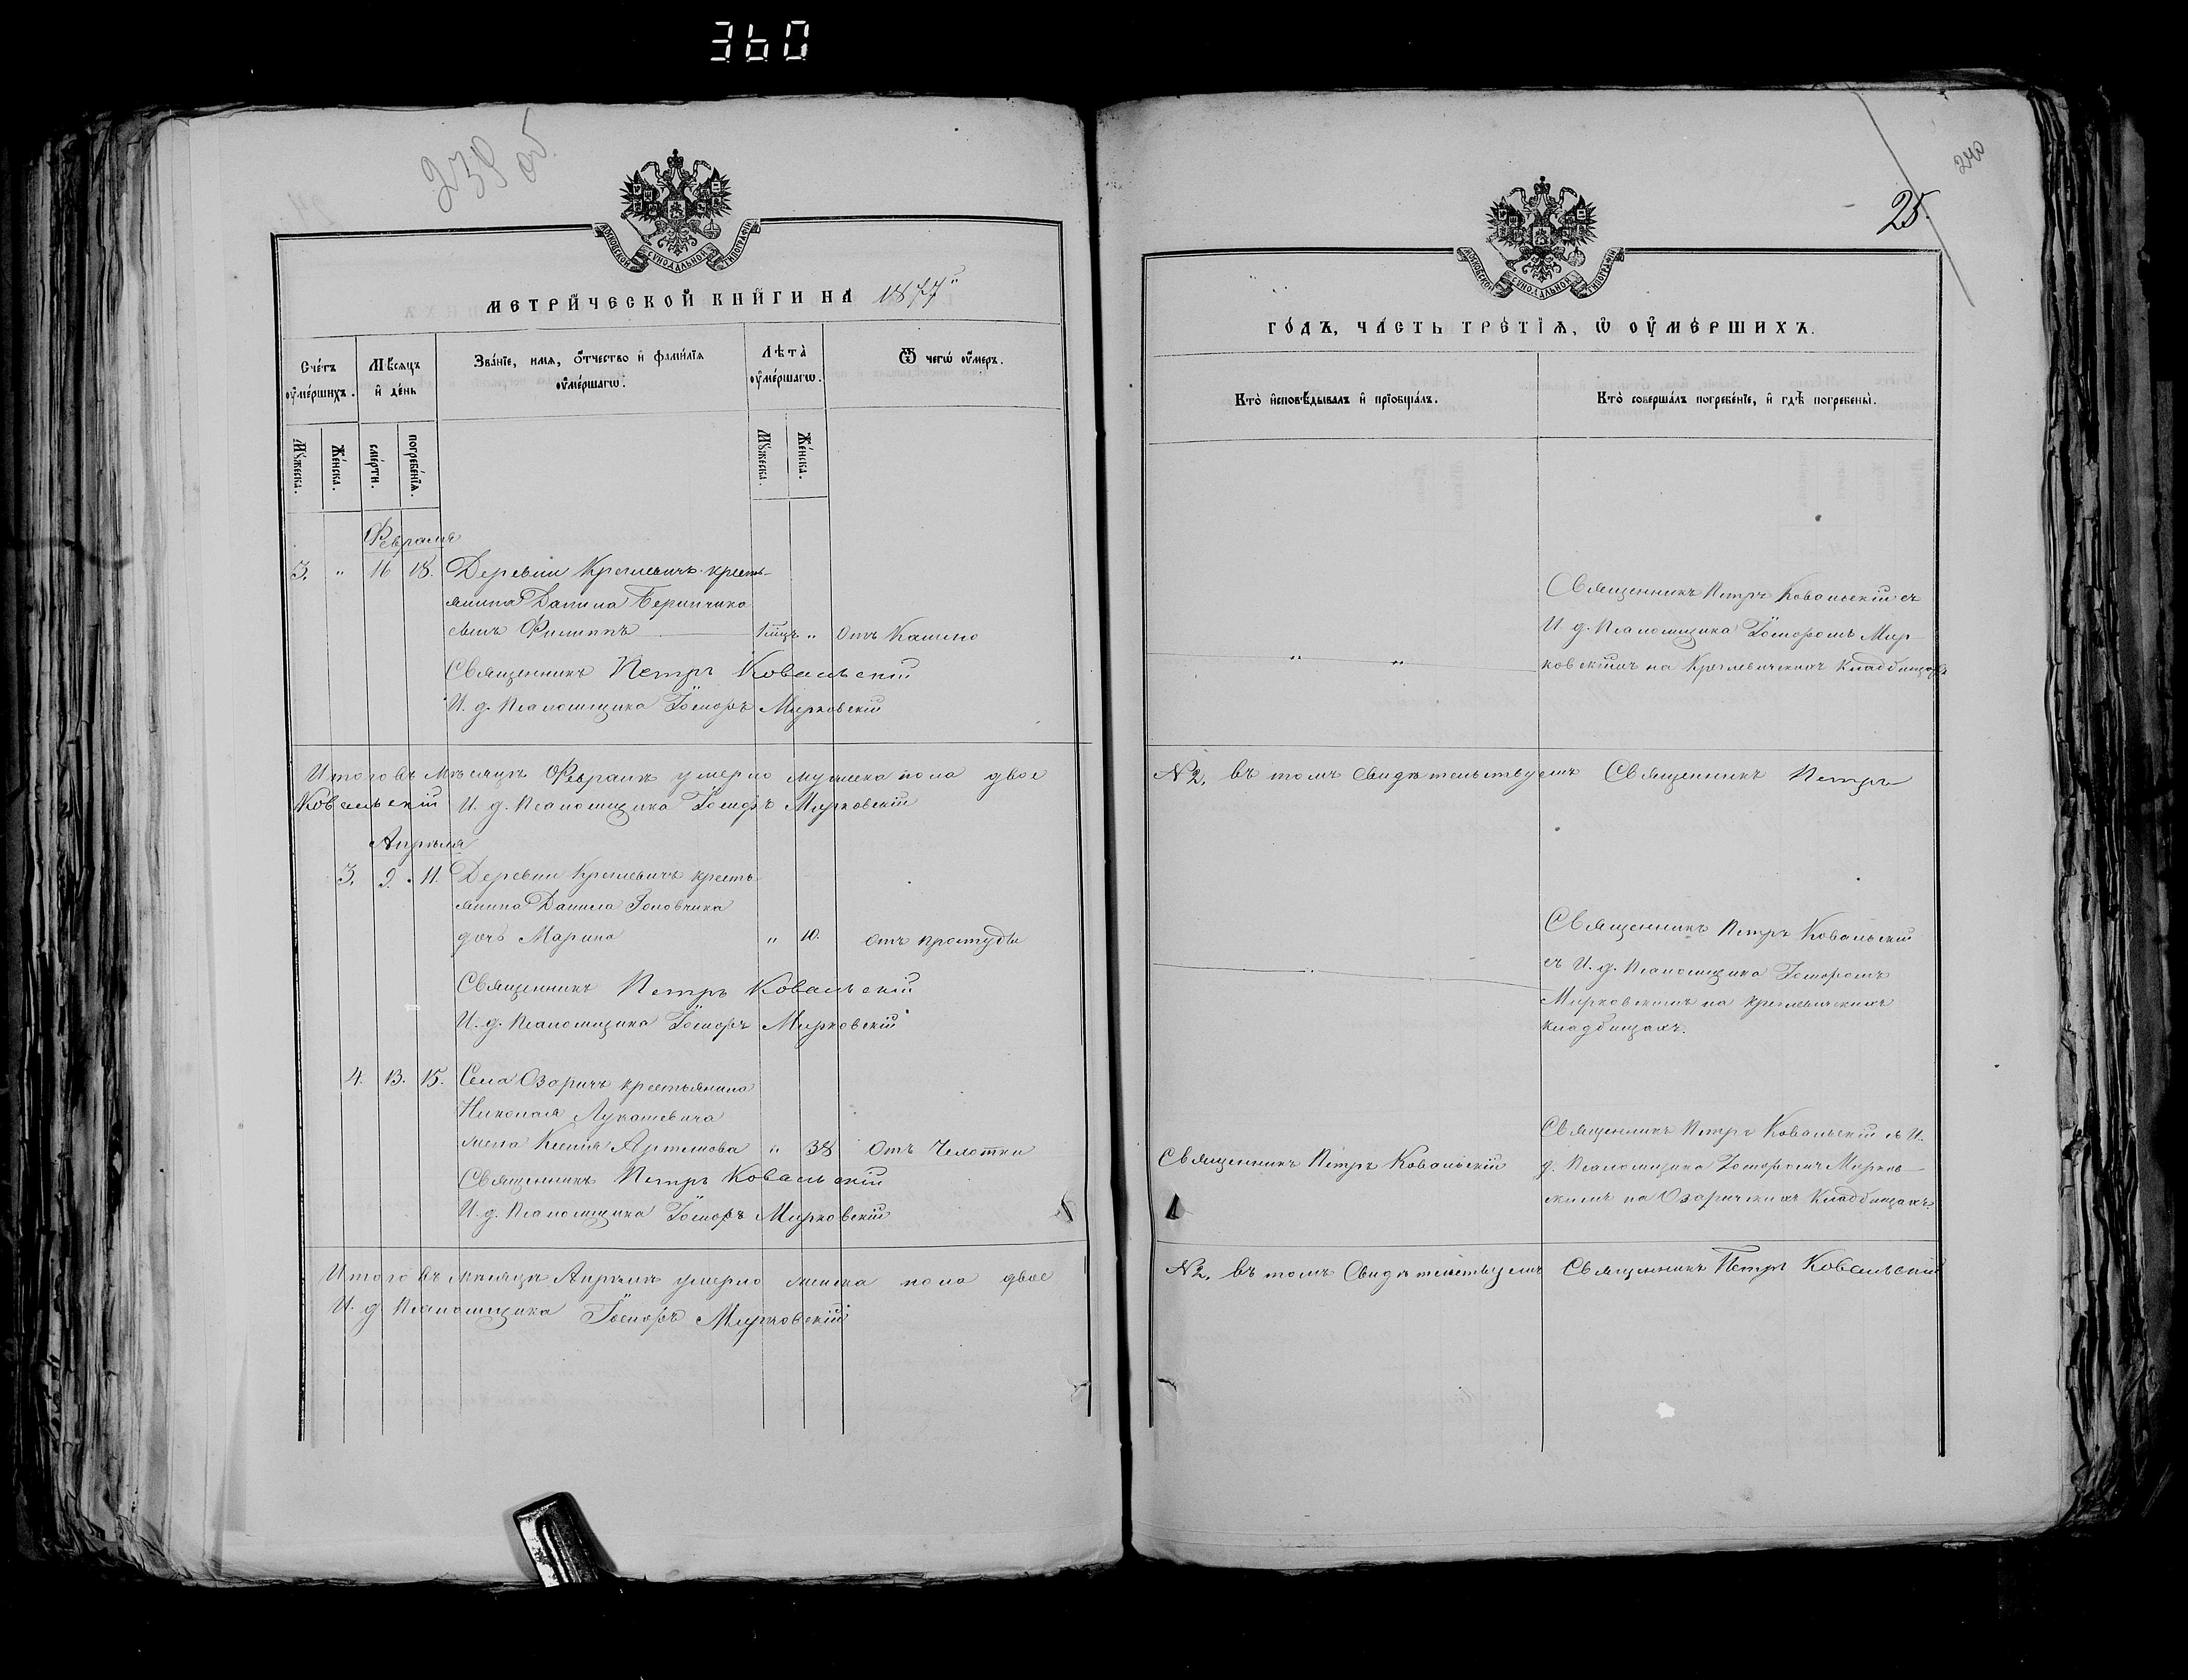 360
239 об.
МОСКОВСКОЙ СѴНОДАЛЬНОЙ ТИПОГРАФІИ
МЕТРИ́ЧЕСКОЙ КНИ́ГИ НА 1877
Сче́тъ оу҆ме́ршихъ.
Мѣ́сяцъ и҆ де́нь
Зва́нїе, имя, о҆́тчество и҆ фами́лїя оу҆ме́ршагѡ.
Лѣта̀ оу҆ме́ршагѡ.
Ѿ чегѡ̀ оу҆́меръ.
Мꙋ́жеска.
Же́нска.
сме́рти.
погребе́нїя.
Мꙋ́жеска.
Же́нска.
Февраля
3. " 16 18. Деревни Кремевичъ кресть-
янина Данила Беринчика
сынъ Филиппъ 1 мцъ " Отъ Кашлю
Священникъ Петръ Ковальскій
И. д. Псаломщика Іосифъ Мирковскій
Итого въ мѣсяцѣ Февралѣ умерло мужеска пола двое
Ковальскій И. д. Псаломщика Іосифъ Мирковскій
Апрѣля
3. 9. 11. Деревни Кремевичъ кресть-
янина Данила Головчика
дочь Марина " 10. отъ простуды
Священникъ Петръ Ковальскій
И. д. Псаломщика Іосифъ Мирковскій
4. 13. 15. Села Озаричъ крестьянина
Николая Лукашевича
жена Ксенія Артемова " 38 Отъ Чехотки
Священникъ Петръ Ковальскій
И. д. Псаломщика Іосифъ Мирковскій
Итого въ мѣсяцѣ Апрѣлѣ умерло женска пола двое
И. д. Псаломщика Іосифъ Мирковскій
240
25.
МОСКОВСКОЙ СѴНОДАЛЬНОЙ ТИПОГРАФІИ
ГО́ДЪ, ЧА́СТЬ ТРЕ́ТЇЯ, Ѡ҆ ОУ҆МЕ́РШИХЪ.
Кто̀ и҆сповѣ́дывалъ и҆ прїобща́лъ.
Кто̀ соверша́лъ погребе́нїе, и҆ гдѣ̀ погребены̀.
Священникъ Петръ Ковальскій съ
И. д. Псаломщика Іосифомъ Мир-
" " ковскимъ на Кремевичскихъ Кладбищахъ
№ 2. въ томъ Свидѣтельствуемъ Священникъ Петръ
Священникъ Петръ Ковальскій
съ И. д. Псаломщика Іосифомъ
Мирковскимъ на кремевичскихъ
кладбищахъ.
Священникъ Петръ Ковальскій съ И.
Священникъ Петръ Ковальскій д. Псаломщика Іосифомъ Мирков-
скимъ на Озаричскихъ Кладбищахъ.
№ 2. въ томъ Свидѣтельствуемъ Священникъ Петръ Ковальскій